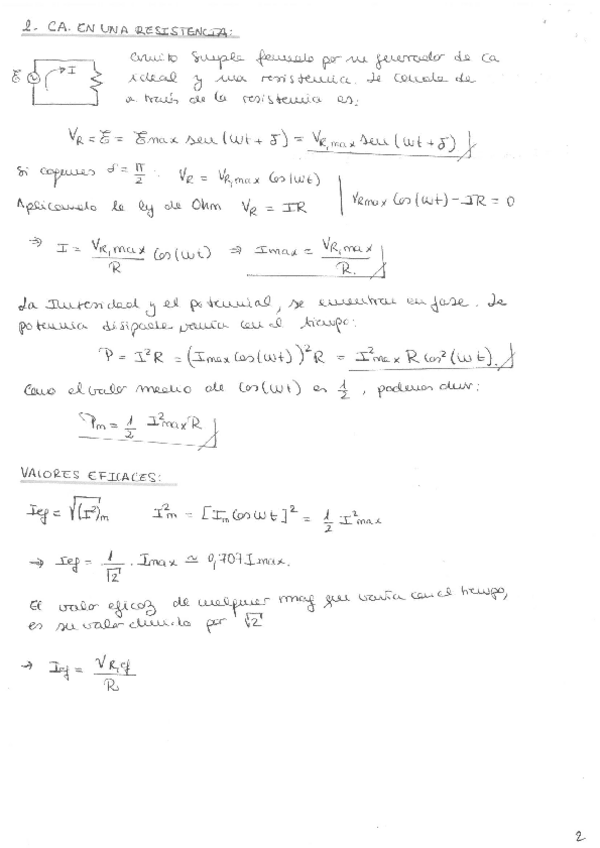 2. CA. EN UNA RESISTENCIA:
Circuito simple formado por un generador de ca
ε I ideal y una resistencia. La caída de
a través de la resistencia es:
V_R = ε = ε_max sen(ωt + δ) = V_R,max sen(ωt + δ)
Si cogemos δ = π/2 : V_R = V_R,max cos(ωt)
Aplicando la ley de Ohm V_R = IR | V_Rmax cos(ωt) - IR = 0
⇒ I = V_R,max/R cos(ωt) ⇒ I_max = V_R,max/R.
La Intensidad y el potencial, se encuentran en fase. La
potencia disipada varía con el tiempo:
P = I²R = (I_max cos(ωt))² R = I²max R cos²(ωt).
Como el valor medio de cos(ωt) es 1/2, podemos decir:
P_m = 1/2 I²max R
VALORES EFICACES:
Ief = √(I²)_m I²m = [I_m cos ωt]² = 1/2 I²max
→ Ief = 1/√2 · Imax ≃ 0,707 Imax.
El valor eficaz de cualquier mag que varía con el tiempo,
es su valor dividido por √2
→ Ief = V_R,ef/R
2